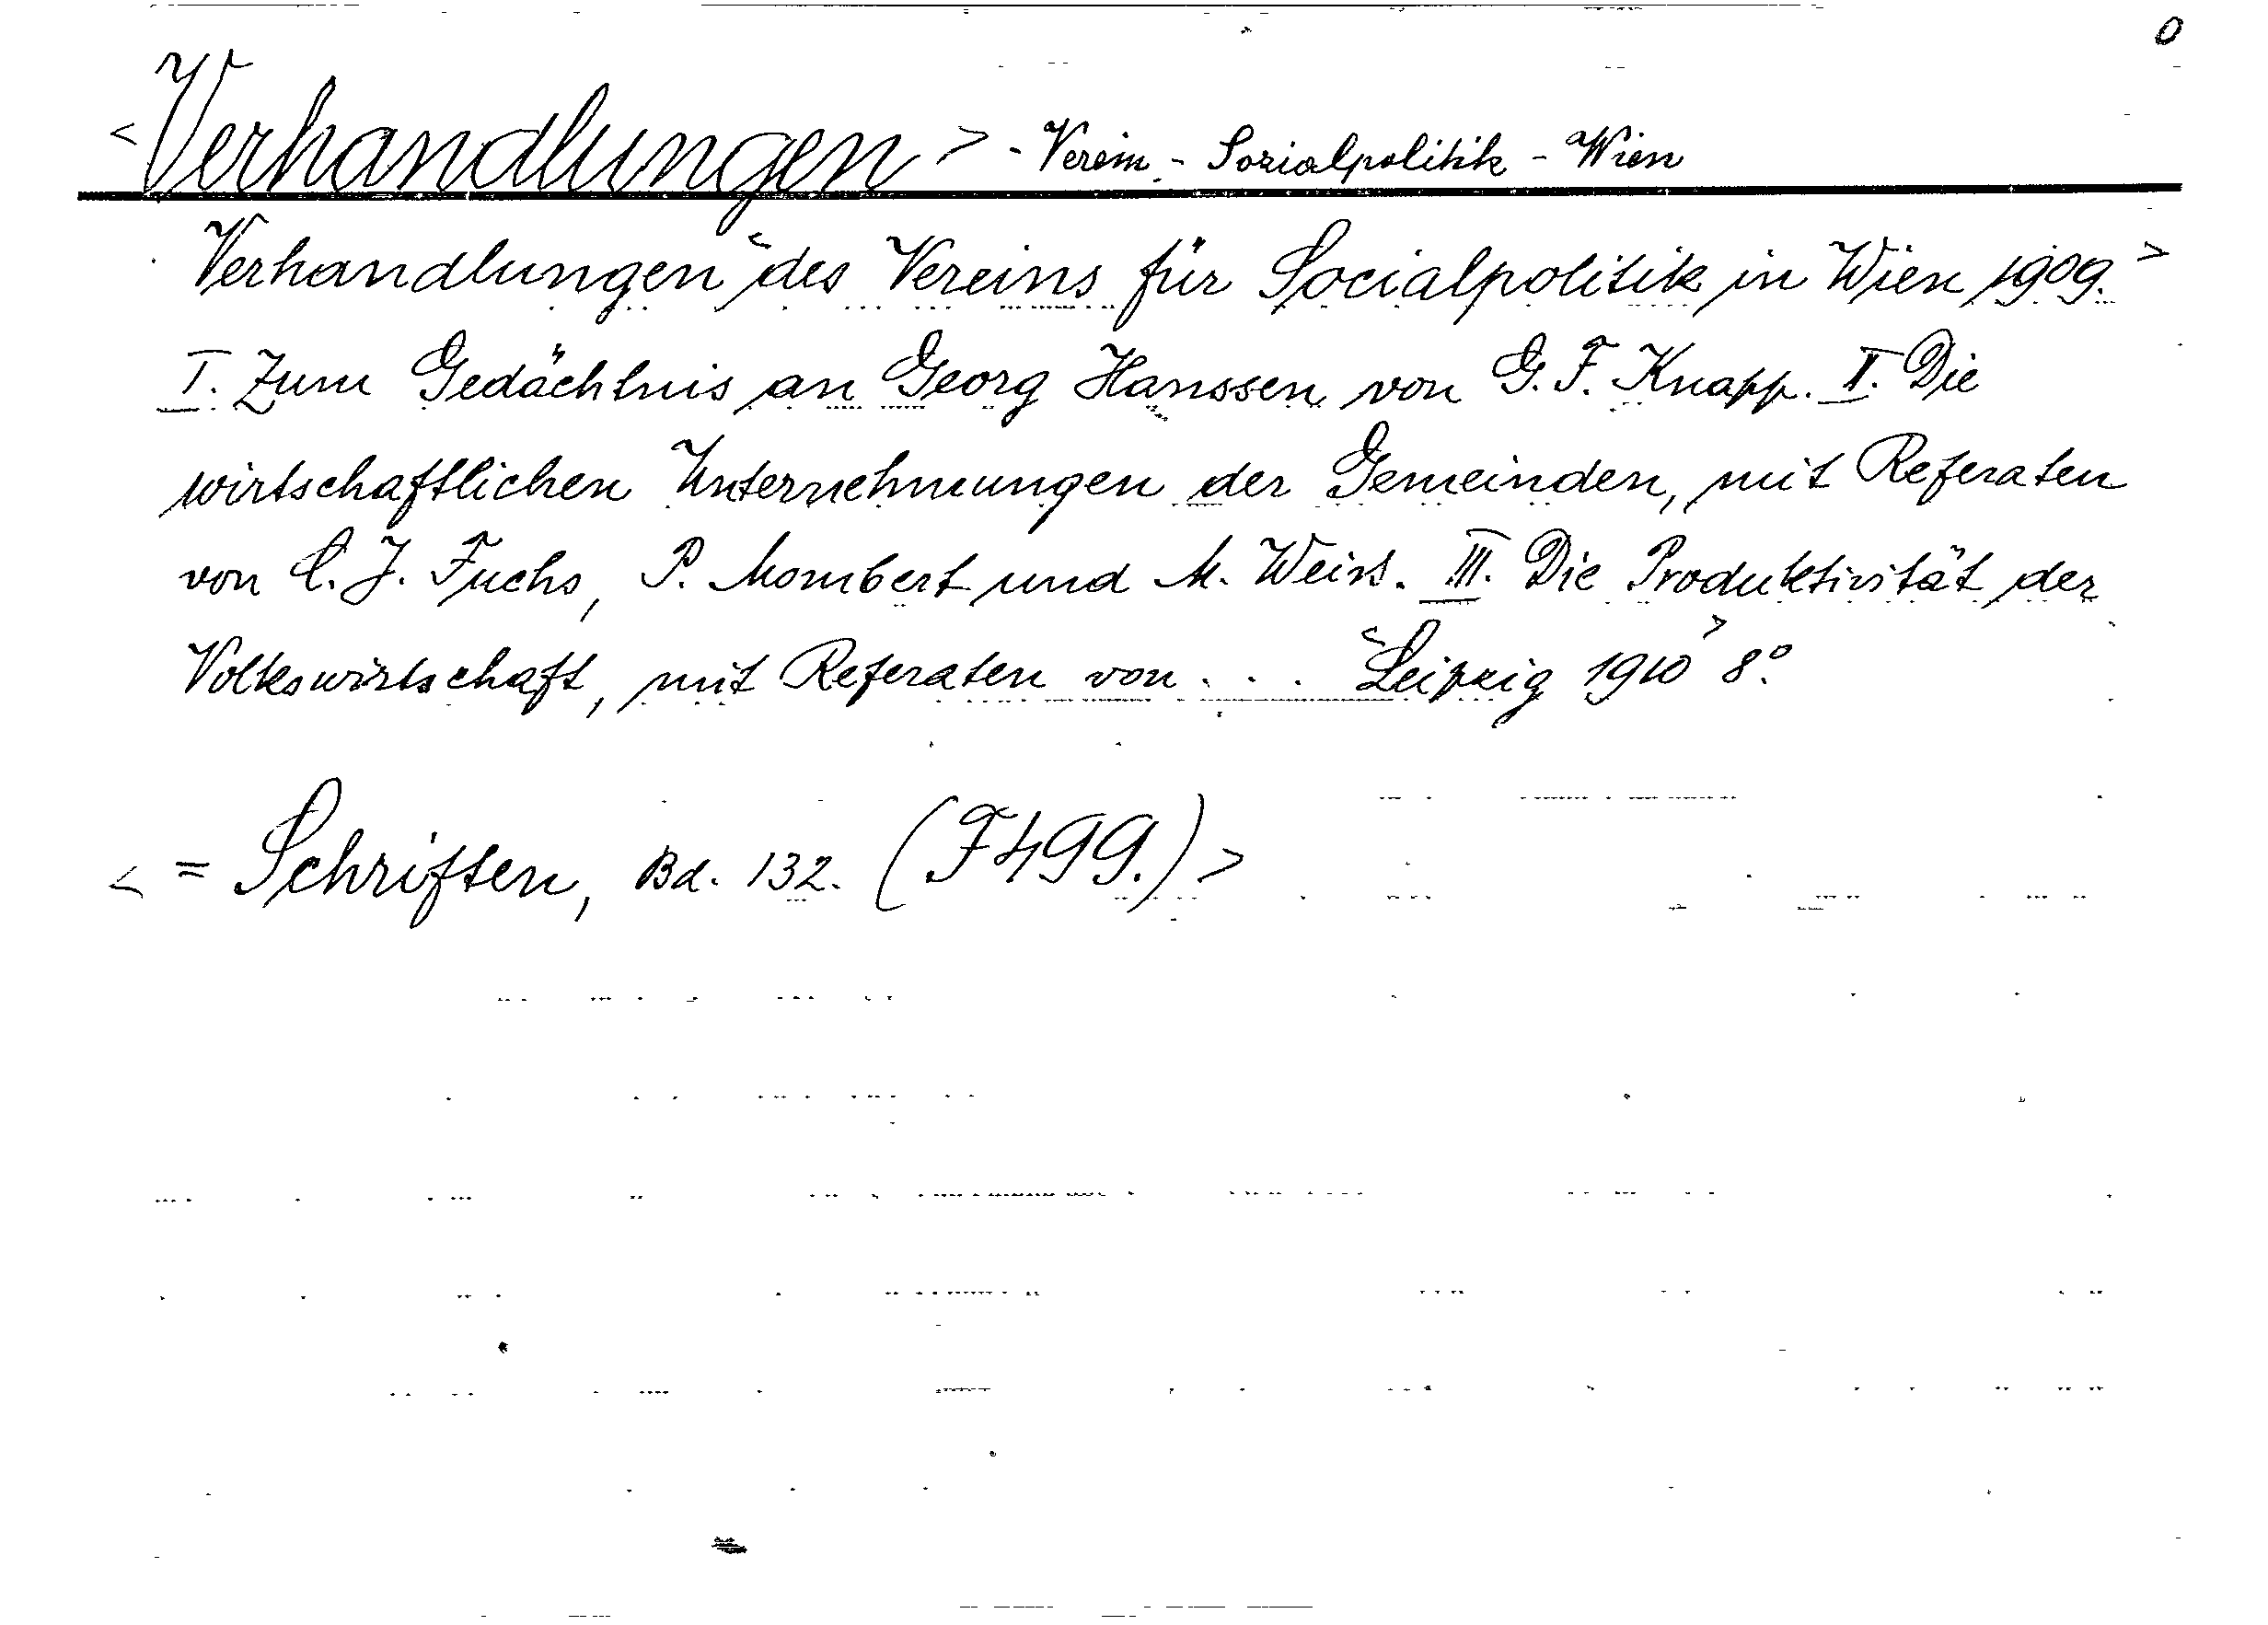 0
<Verhandlungen> - Verein - Sozialpolitik - Wien
Verhandlungen <des Vereins für Socialpolitik in Wien 1909.>
I. Zum Gedächtnis an Georg Hanssen von G. F. Knapp. II. Die
wirtschaftlichen Unternehmungen der Gemeinden, mit Referaten
von C. J. Fuchs, P. Mombert und M. Weiss. III. Die Produktivität der
Volkswirtschaft, mit Referaten von . . . <Leipzig 1910> 8°.
< = Schriften, Bd. 132. (F499.) >